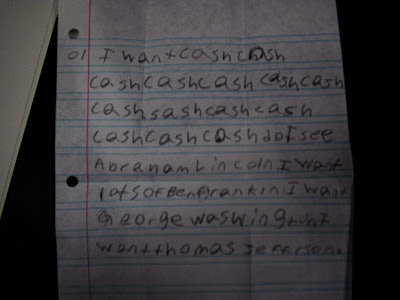 01 I want cash cash
cash cash cash cash cash
cash sash cash cash
cash cash cash do I see
Abranam Lincoln I want
lots of Ben frankin I want
George waswington I
want thomas Jefferson